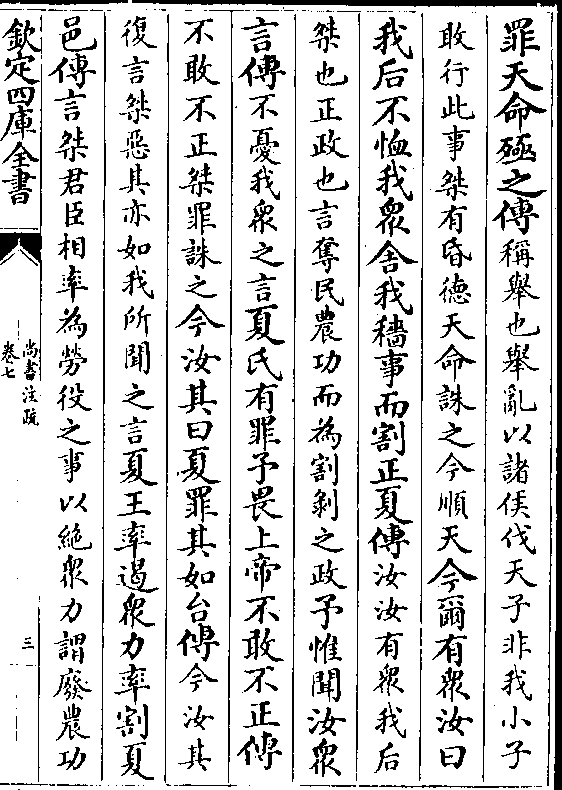 罪天命殛之傳稱舉也舉亂以諸侯伐天子非我小子
敢行此事桀有昏德天命誅之今順天今爾有衆汝曰
我后不恤我衆舍我穡事而割正夏傳汝汝有衆我后
桀也正政也言奪民農功而為割剝之政予惟聞汝衆
言傳不憂我衆之言夏氏有罪予畏上帝不敢不正傳
不敢不正桀罪誅之今汝其曰夏罪其如台傳今汝其
復言桀惡其亦如我所聞之言夏王率遏衆力率割夏
邑傳言桀君臣相率為勞役之事以絶衆力謂廢農功
欽定四庫全書
尚書注疏
卷七
三